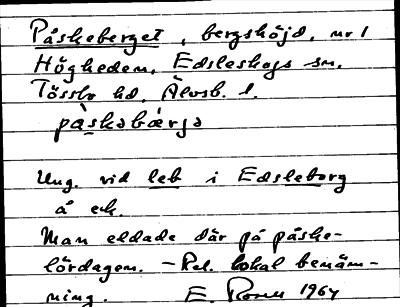 Påskeberget, bergshöjd, nr 1
Högheden, Edsleskogs sn.
Tössbo hd, Älvsb. l.
påskabærja
Ung. vid leb i Edsleborg
å ek.
Man eldade där på påske-
lördagen. – Rel. lokal benäm-
ning. E. Rosell 1964